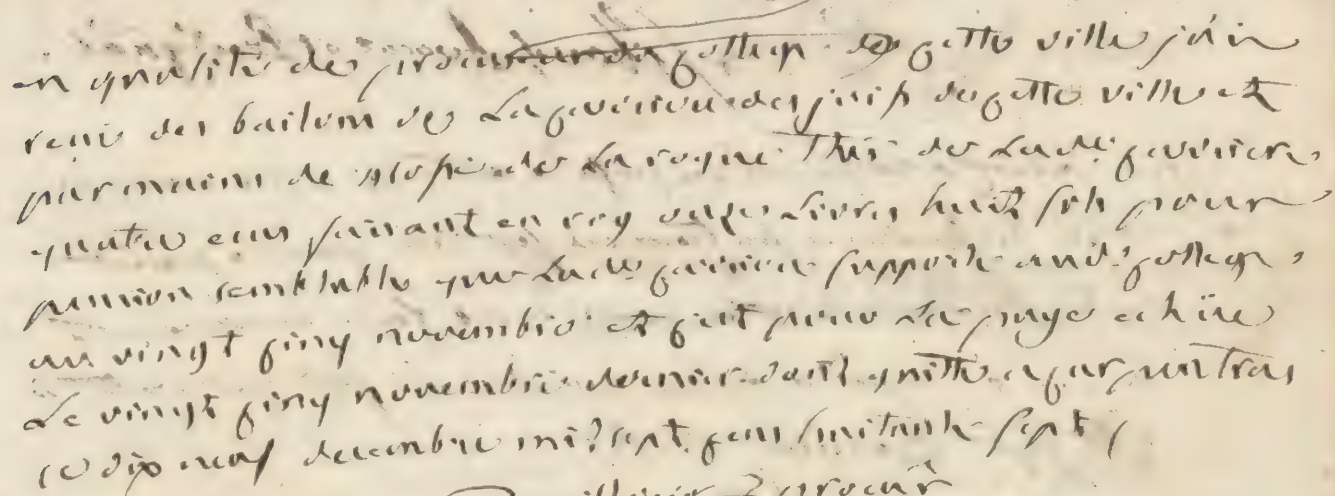 en qualité de procureur du college de cette ville jài
reçu des bailons de La carriere des juifs de cette ville et
par mains de mossé de La roque Thr̃ de Lade carriere
quatre ecus faisant en roy livres huit sols pour
pention semblable que Lade carriere supporte audt college
au vingt cinq novembre et c'est pour La paye echüe
Le vingt cinq novembre dernier dont quitte a carpentras
ce dix neuf decembre mil sept cens septante sept
procur̂